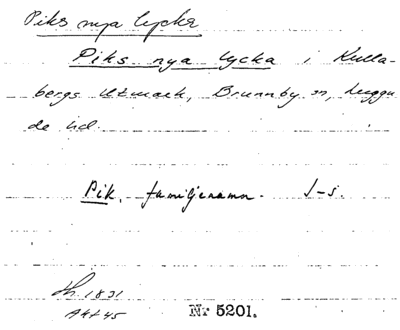 Piks nya lycka
Piks nya lycka i Kulla-
bergs Utmark, Brunnby sn, Luggu
de hd.
Pik, familjenamn. J-s.
1831
Akt 45
Nr 5201.